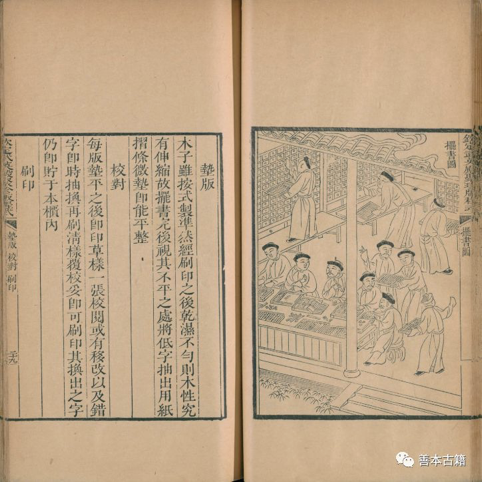 擺書圖
擺書圖
墊版
木子雖按式製準然經刷印之後乾濕不勻則木性究
有伸縮故擺書完後視其不平之處將低字抽出用紙
摺條微墊即能平整
校對
每版墊平之後即印草樣一張校閱或有移改以及錯
字即時抽換再刷清樣覆校妥即可刷印其換出之字
仍即貯于本櫃內
刷印
墊版 校對 刷印
善本古籍